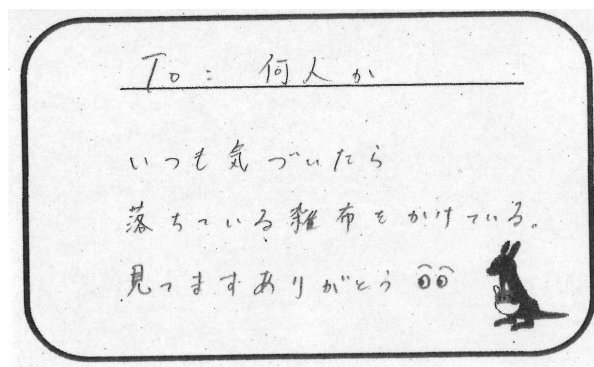 To: 何人か
いつも気づいたら
落ちている雑布をかけている。
見てますありがとう